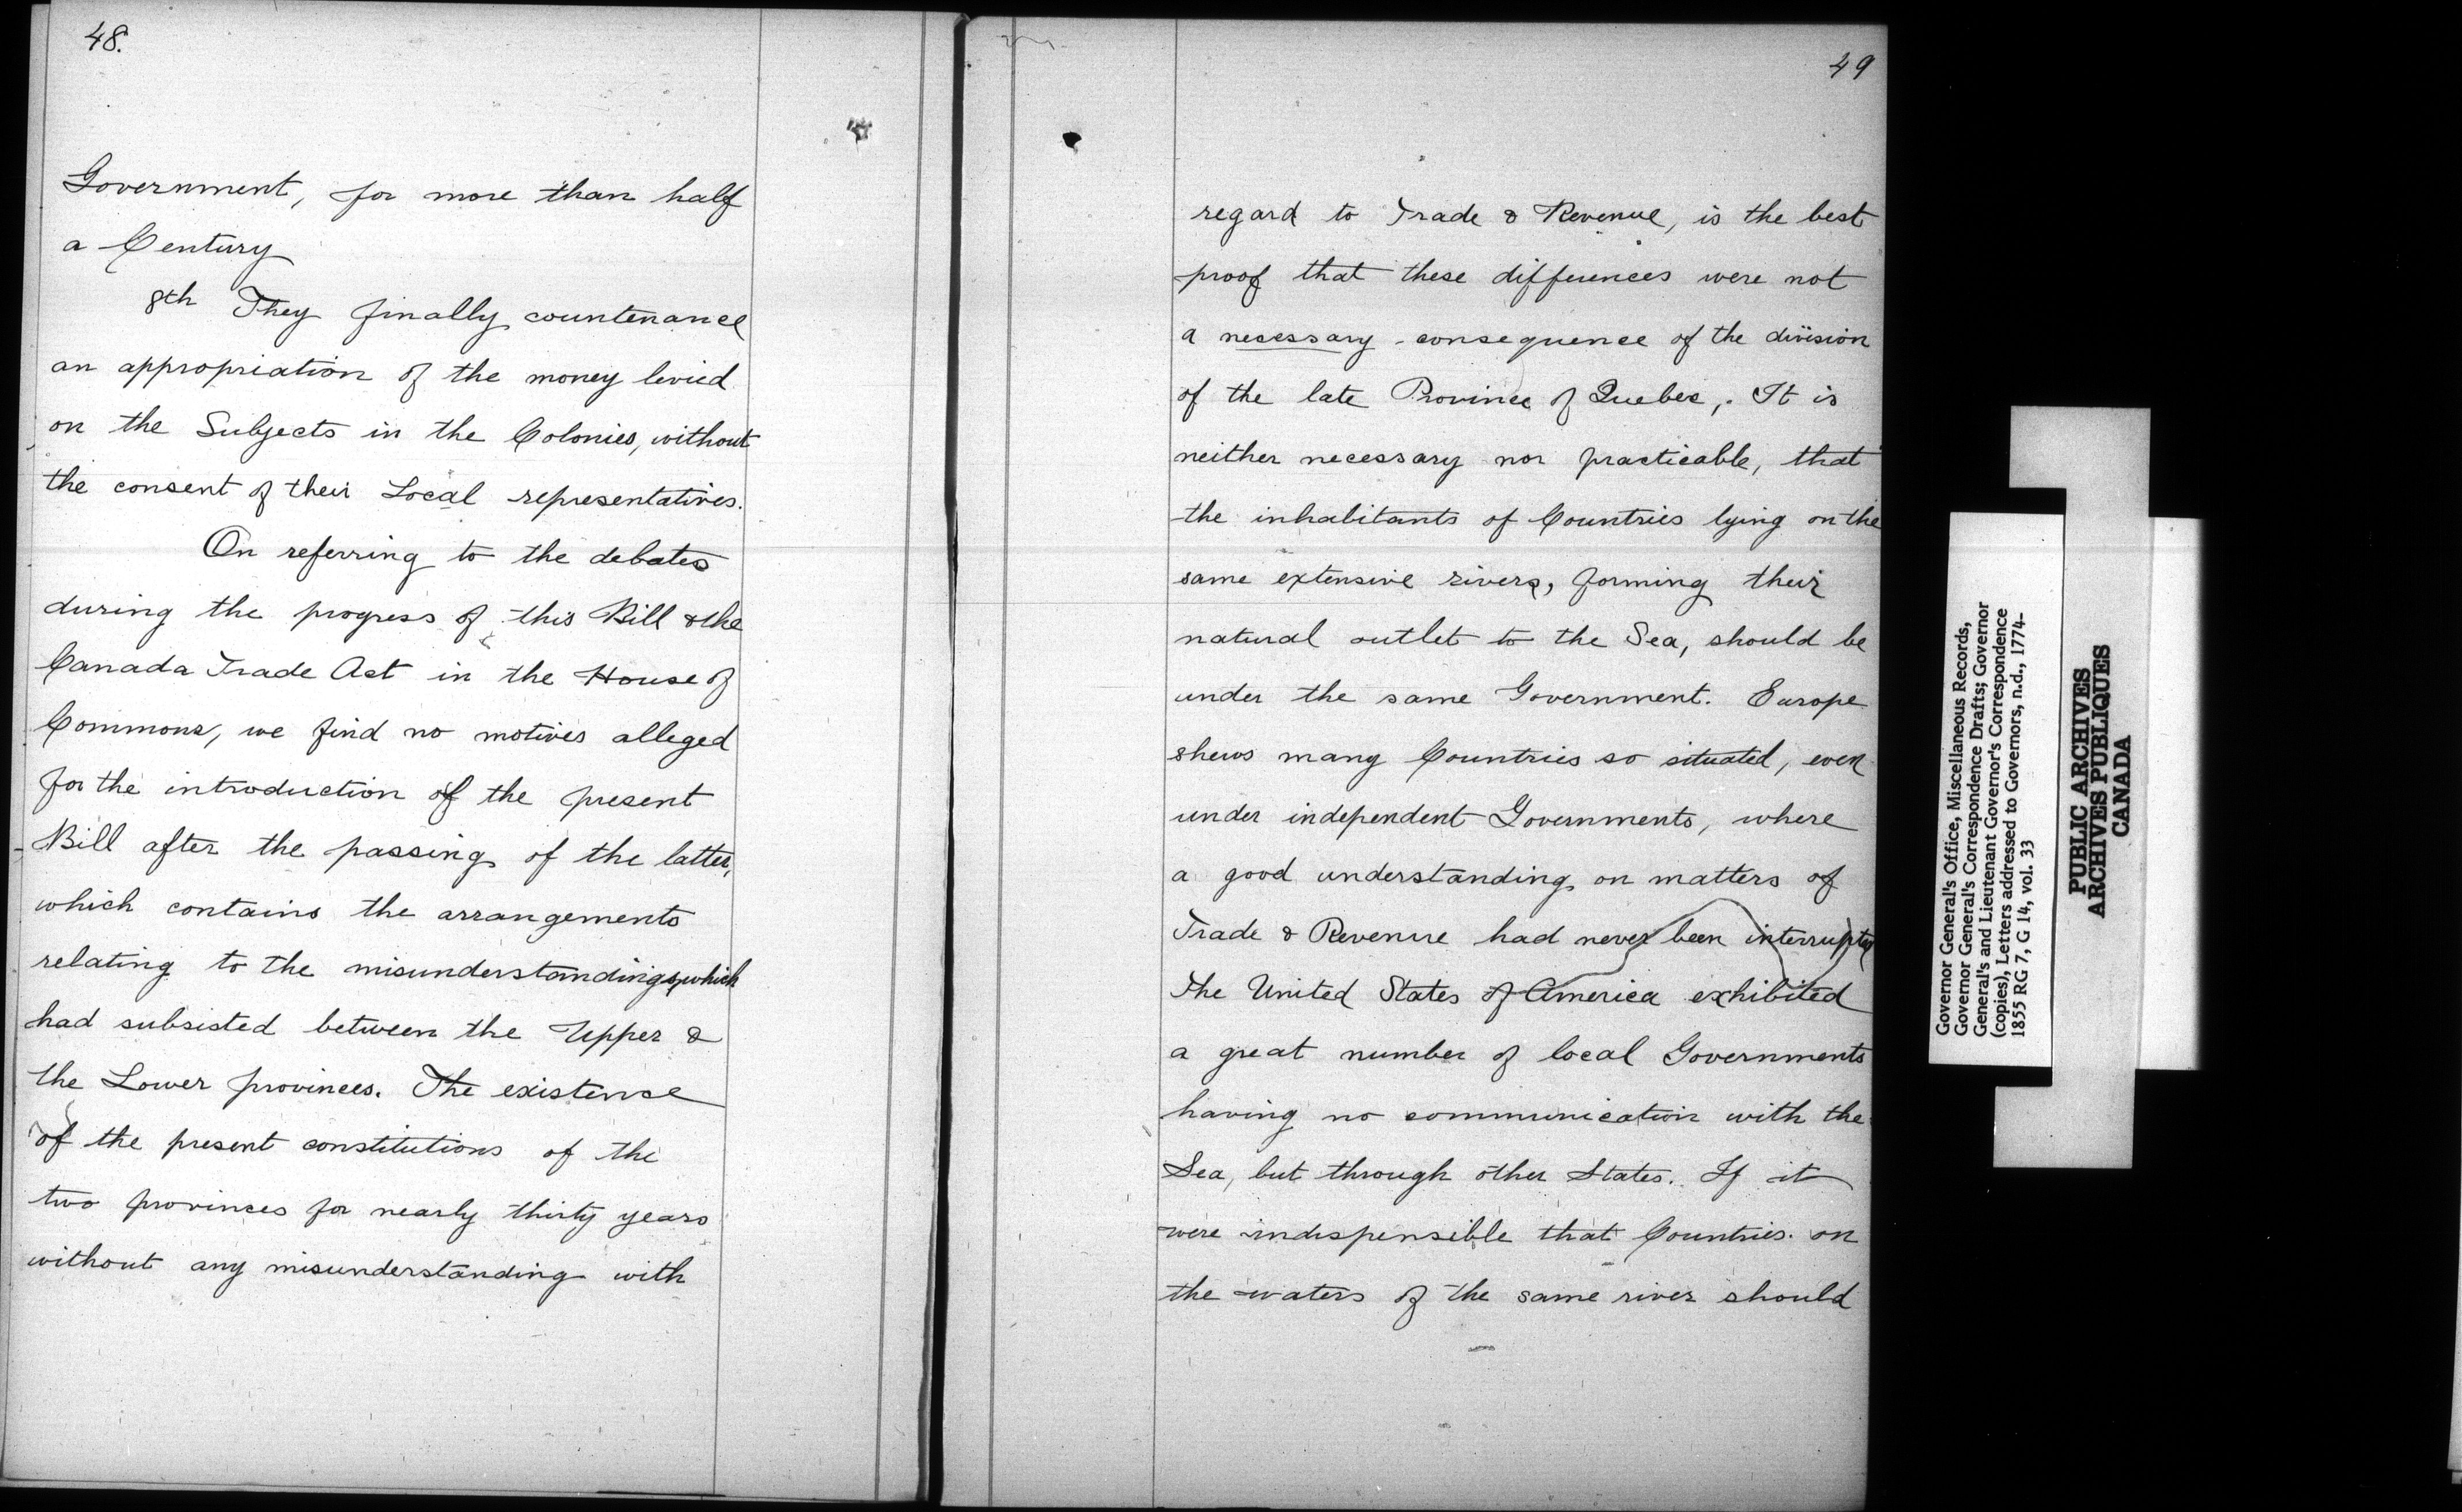 48.
Government, for more than half
a Century
8th They finally countenance
an appropriation of the money levied
on the Subjects in the Colonies, without
the consent of their Local representatives.
On referring to the debates
during the progress of this Bill & the
Canada Trade Act in the House of
Commons, we find no motives alleged
for the introduction of the present
Bill after the passing of the latter,
which contains the arrangements
relating to the misunderstandings, which
had subsisted between the Upper &
the Lower provinces. The existence
of the present constitutions of the
two provinces for nearly thirty years
without any misunderstanding with
49
regard to Trade & Revenue, is the best
proof that these differences were not
a necessary consequence of the division
of the late Province of Quebec,. It is
neither necessary nor practicable, that
the inhabitants of Countries lying on the
same extensive rivers, forming their
natural outlet to the Sea, should be
under the same Government. Europe
shews many Countries so situated, even
under independent Governments, where
a good understanding on matters of
Trade & Revenue had never been interrupted
The United States of America exhibited
a great number of local Governments
having no communication with the
Sea, but through other States. If it
were indispensible that Countries on
the waters of the same river should
Governor General's Office, Miscellaneous Records,
Governor General's Correspondence Drafts; Governor
General's and Lieutenant Governor's Correspondence
(copies), Letters addressed to Governors, n.d., 1774-
1855 RG 7, G 14, vol. 33
PUBLIC ARCHIVES
ARCHIVES PUBLIQUES
CANADA